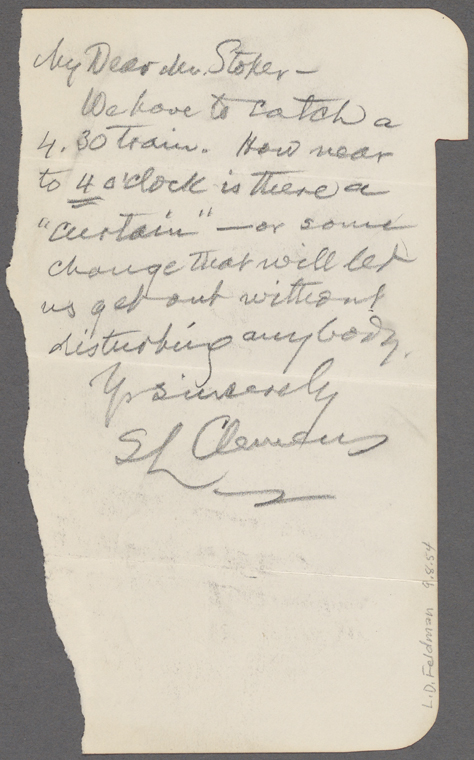 My Dear Mr. Stoker —
We have to catch a
4.30 train. How near
to 4 o'clock is there a
"curtain" — or some
change that will let
us get out without
disturbing anybody.
Yr sincerely
SL Clemens
L.D. Feldman 9.8.54